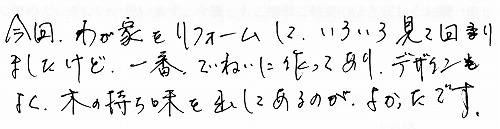 今回、わが家をリフォームして、いろいろ見て回り
ましたけど、一番、ていねいに作ってあり、デザインも
よく、木の持ち味を出してあるのが、よかったです。